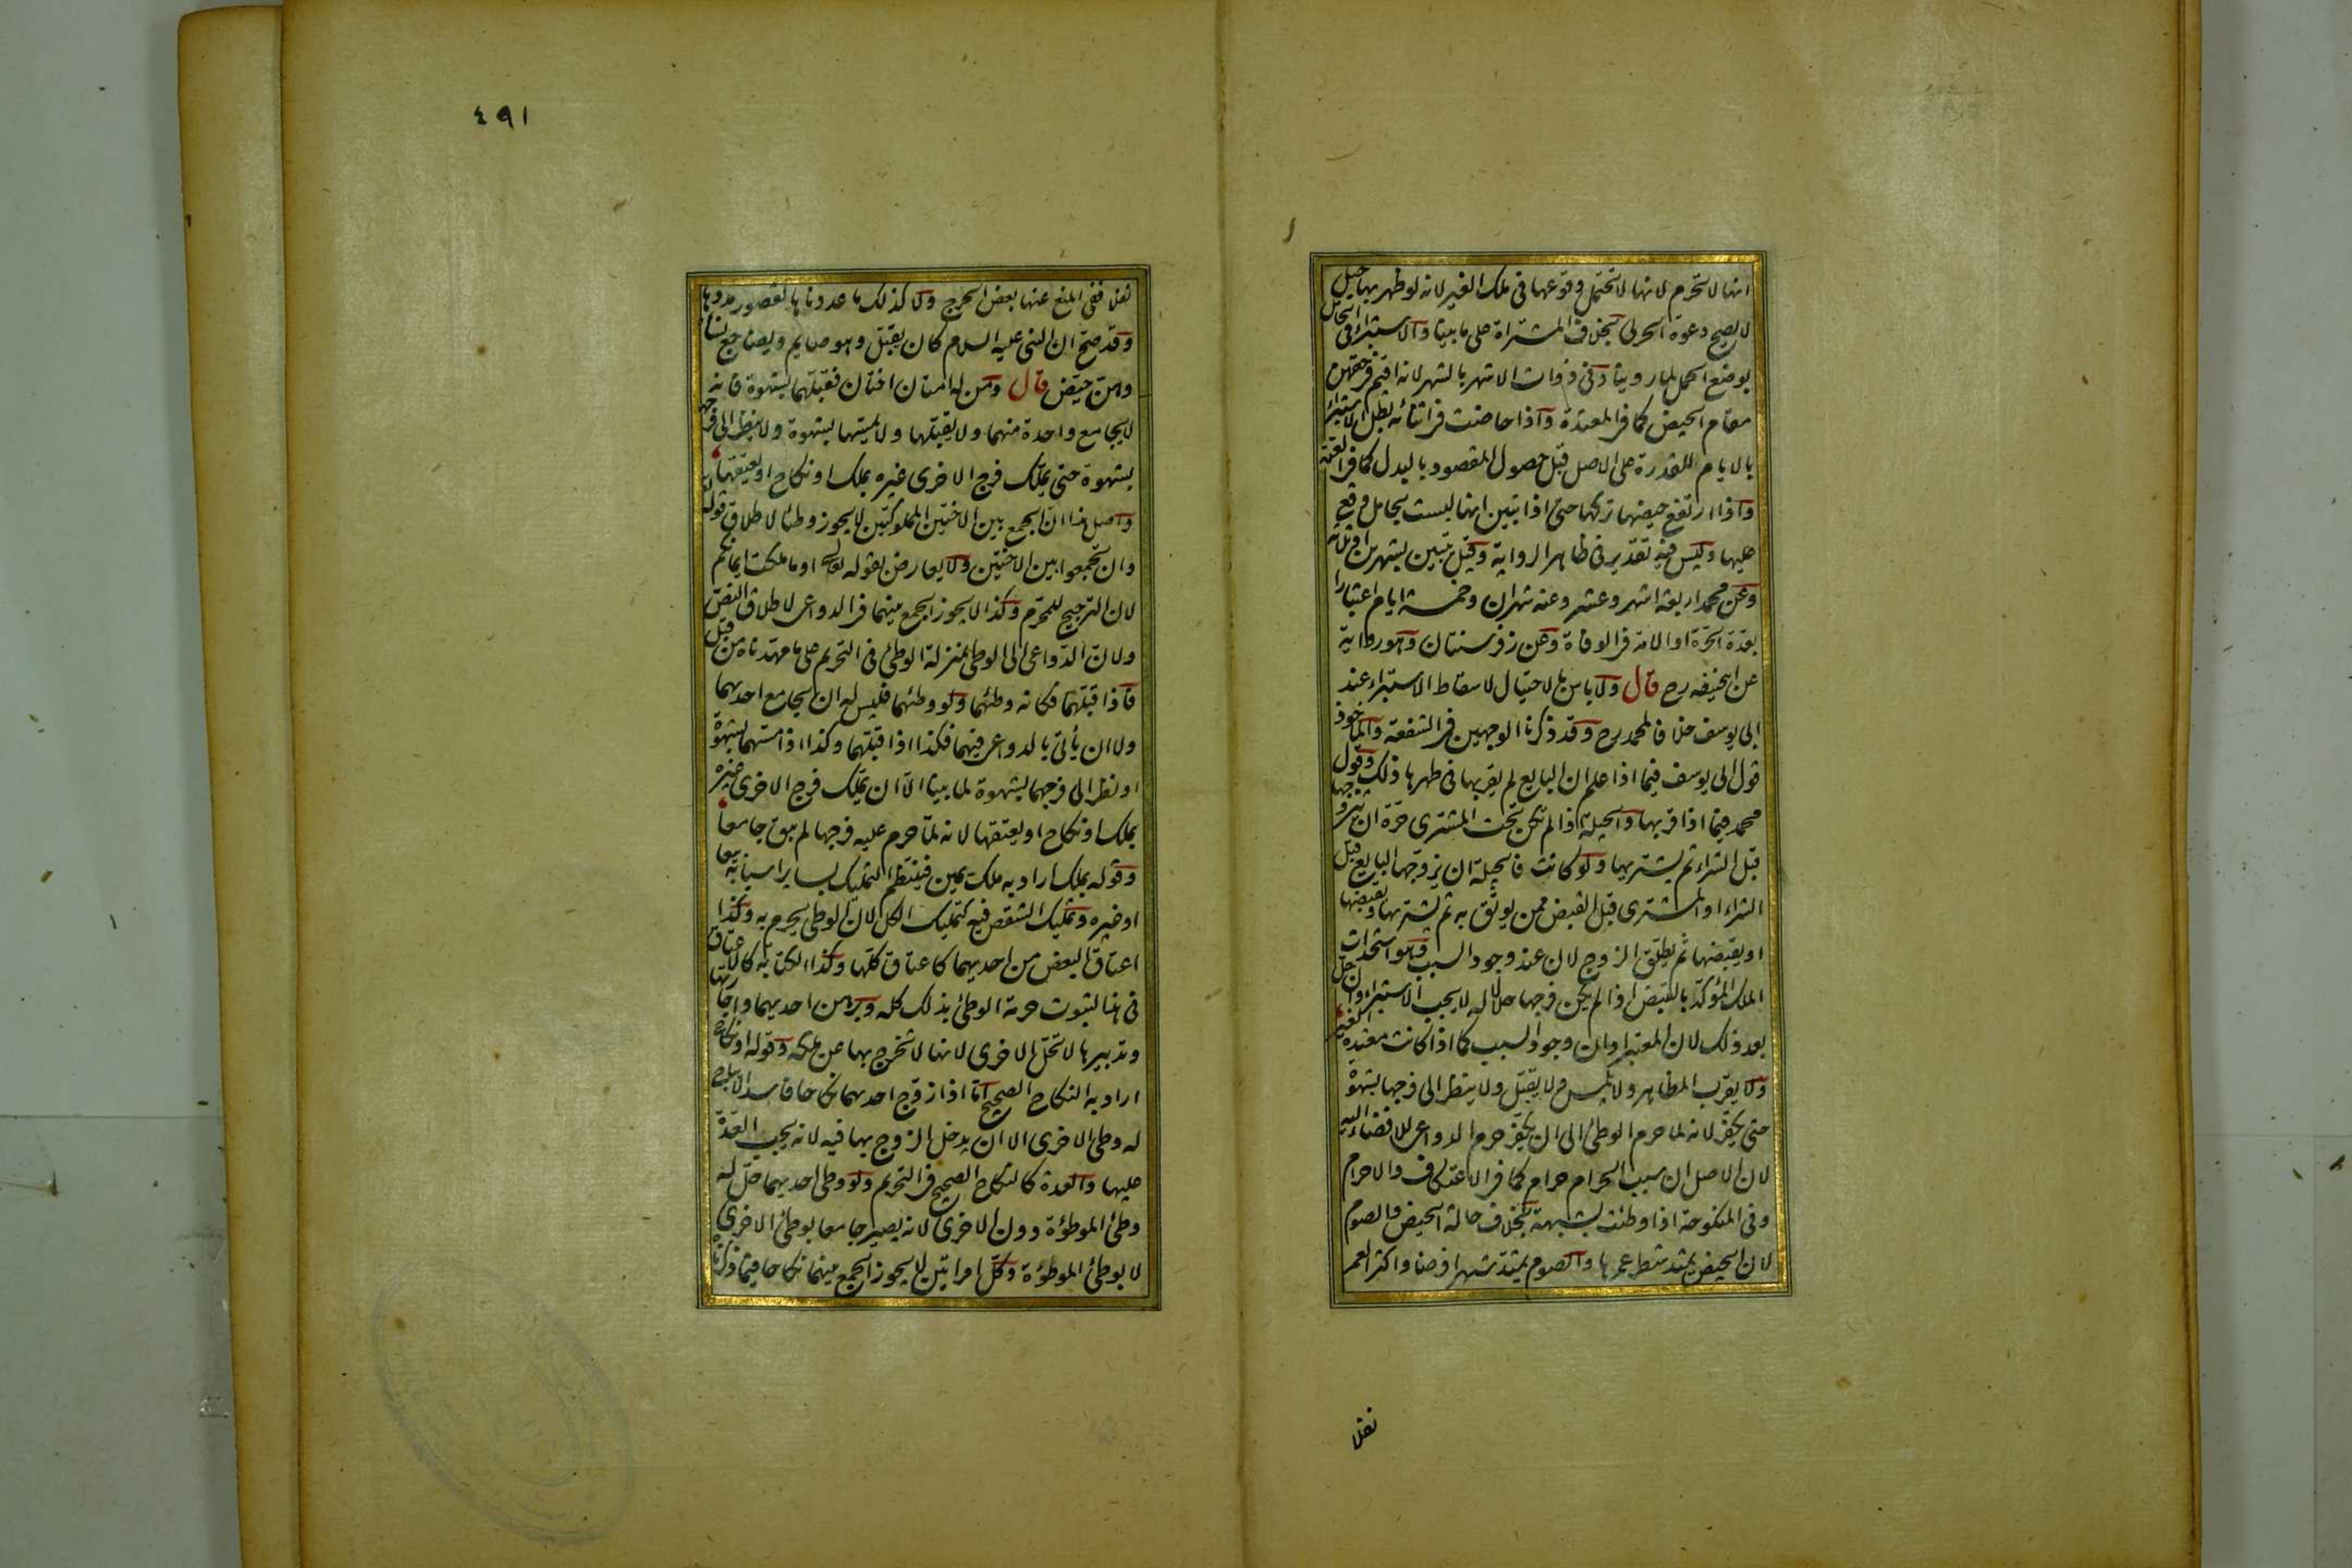 انها لا تحرم لانها لا تحتمل وقوعها فى ملك الغير لانه لو ظهر بها حبل
لا يصح دعوة الحربى بخلاف المشتراة على ما بينا والاستبراء فى الحامل
بوضع الحمل لما روينا وفى ذوات الاشهر بالشهر لانه اقيم فى حقهن
مقام الحيض كما فى المعتدة واذا حاضت فى اثنائه بطل الاستبراء
بالايام للقدرة على الاصل قبل حصول المقصود بالبدل كما فى العدة
واذا ارتفع حيضها تركها حتى اذا تبين انها ليست بحامل وقع
عليها وليس فيه تقدير فى ظاهر الرواية وقيل يتبين بشهرين او ثلثة
وعن محمد اربعة اشهر وعشر وعنه شهران وخمسة ايام اعتبارا
بعدة الحرة او الامة فى الوفاة وعن زفر سنتان وهو رواية
عن ابى حنيفه رح قال ولا باس بالاحتيال لاسقاط الاستبراء عند
ابى يوسف خلافا لمحمد رح وقد ذكرنا الوجهين فى الشفعة والماخوذ
قول ابى يوسف فيما اذا علم ان البايع لم يقربها فى طهرها ذلك وقول
محمد فيما اذا قربها والحيلة اذا لم تكن تحت المشترى حرة ان يتزوجها
قبل الشراء ثم يشتريها ولو كانت فالحيلة ان يزوجها البايع قبل
الشراء او المشترى قبل القبض ممن يوثق به ثم يشتريها ويقبضها
او يقبضها ثم يطلق الزوج لان عند وجود السبب وهو استحداث
الملك المؤكد بالقبض اذا لم يكن فرجها حلالا له لا يجب الاستبراء وان حل
بعد ذلك لان المعتبر اوان وجود السبب كما اذا كانت معتدة الغير
ولا يقرب المظاهر ولا يلمس ولا يقبل ولا ينظر الى فرجها بشهوة
حتى يكفر لانه لما حرم الوطئ الى ان يكفر حرم الدواعى للافضاء اليه
لان الاصل ان سبب الحرام حرام كما فى الاعتكاف والاحرام
وفى المنكوحة اذا وطئت بشبهة بخلاف حالة الحيض والصوم
لان الحيض يمتد شطر عمرها والصوم يمتد شهرا فرضا واكثر العمر
نفلا
٤٩١
نفلا ففى المنع عنها بعض الحرج ولا كذلك ما عددناها لقصور مددها
وقد صح ان النبى عليه السلام كان يقبل وهو صايم ويضاجع نساءه
وهن حيض قال ومن له امتان اختان فقبلهما بشهوة فانه
لا يجامع واحدة منهما ولا يقبلها ولا يمسها بشهوة ولا ينظر الى فرجها
بشهوة حتى يملك فرج الاخرى غيره بملك او نكاح او يعتقها
واصل هذا ان الجمع بين الاختين المملوكتين لا يجوز وطئا لاطلاق قوله تعالى
وان تجمعوا بين الاختين ولا يعارض بقوله تعالى او ما ملكت ايمانكم
لان الترجيح للمحرم وكذا لا يجوز الجمع بينهما فى الدواعى لاطلاق النص
ولان الدواعى الى الوطئ بمنزلة الوطئ فى التحريم على ما مهدناه من قبل
فاذا قبلهما فكانه وطئهما ولو وطئهما فليس له ان يجامع احديهما
ولا ان يأتى بالدواعى فيهما فكذا اذا قبلهما وكذا اذا مسهما بشهوة
او نظر الى فرجهما بشهوة لما بينا الا ان يملك فرج الاخرى غيره
بملك او نكاح او يعتقها لانه لما حرم عليه فرجها لم يبق جامعا
وقوله بملك اراد به ملك يمين فينتظم التمليك بساير اسبابه بيعا
او غيره وتمليك الشقص فيه كتمليك الكل لان الوطئ يحرم به وكذا
اعتاق البعض من احديهما كاعتاق كلها وكذا الكتابة كالاعتاق
فى هذا لثبوت حرمة الوطئ بذلك كله وبرهن احديهما واجارتها
وتدبيرها لا تحل الاخرى لانها لا تخرج بها عن ملكه وقوله او نكاح
اراد به النكاح الصحيح اما اذا زوج احديهما نكاحا فاسدا لا يباح
له وطئ الاخرى الا ان يدخل الزوج بها فيه لانه يجب العدة
عليها والعدة كالنكاح الصحيح فى التحريم ولو وطئ احديهما حل له
وطئ الموطؤة دون الاخرى لانه يصير جامعا بوطئ الاخرى
لا بوطئ الموطؤة وكل امراتين لا يجوز الجمع بينهما نكاحا فيما ذكرناه